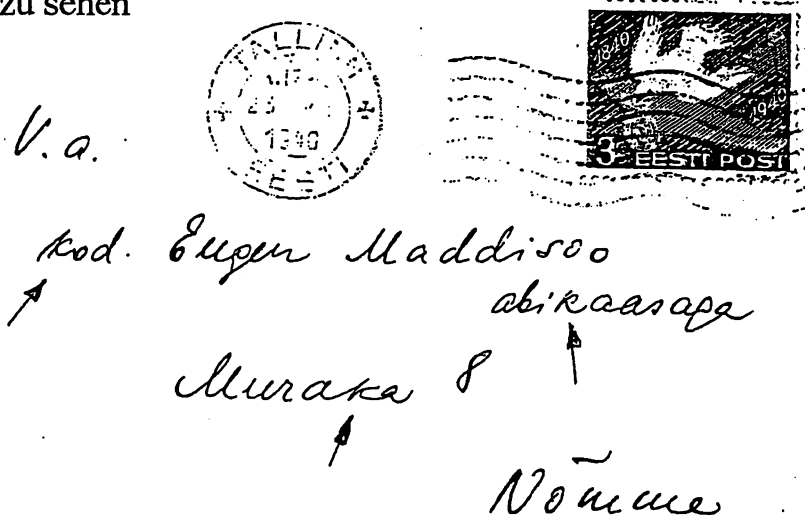 zu sehen
TALLINN
1940
EESTI
1840
1940
3 EESTI POST
V. a.
kod. Eugen Maddisoo
abikaasaga
Muraka 8
Nõmme